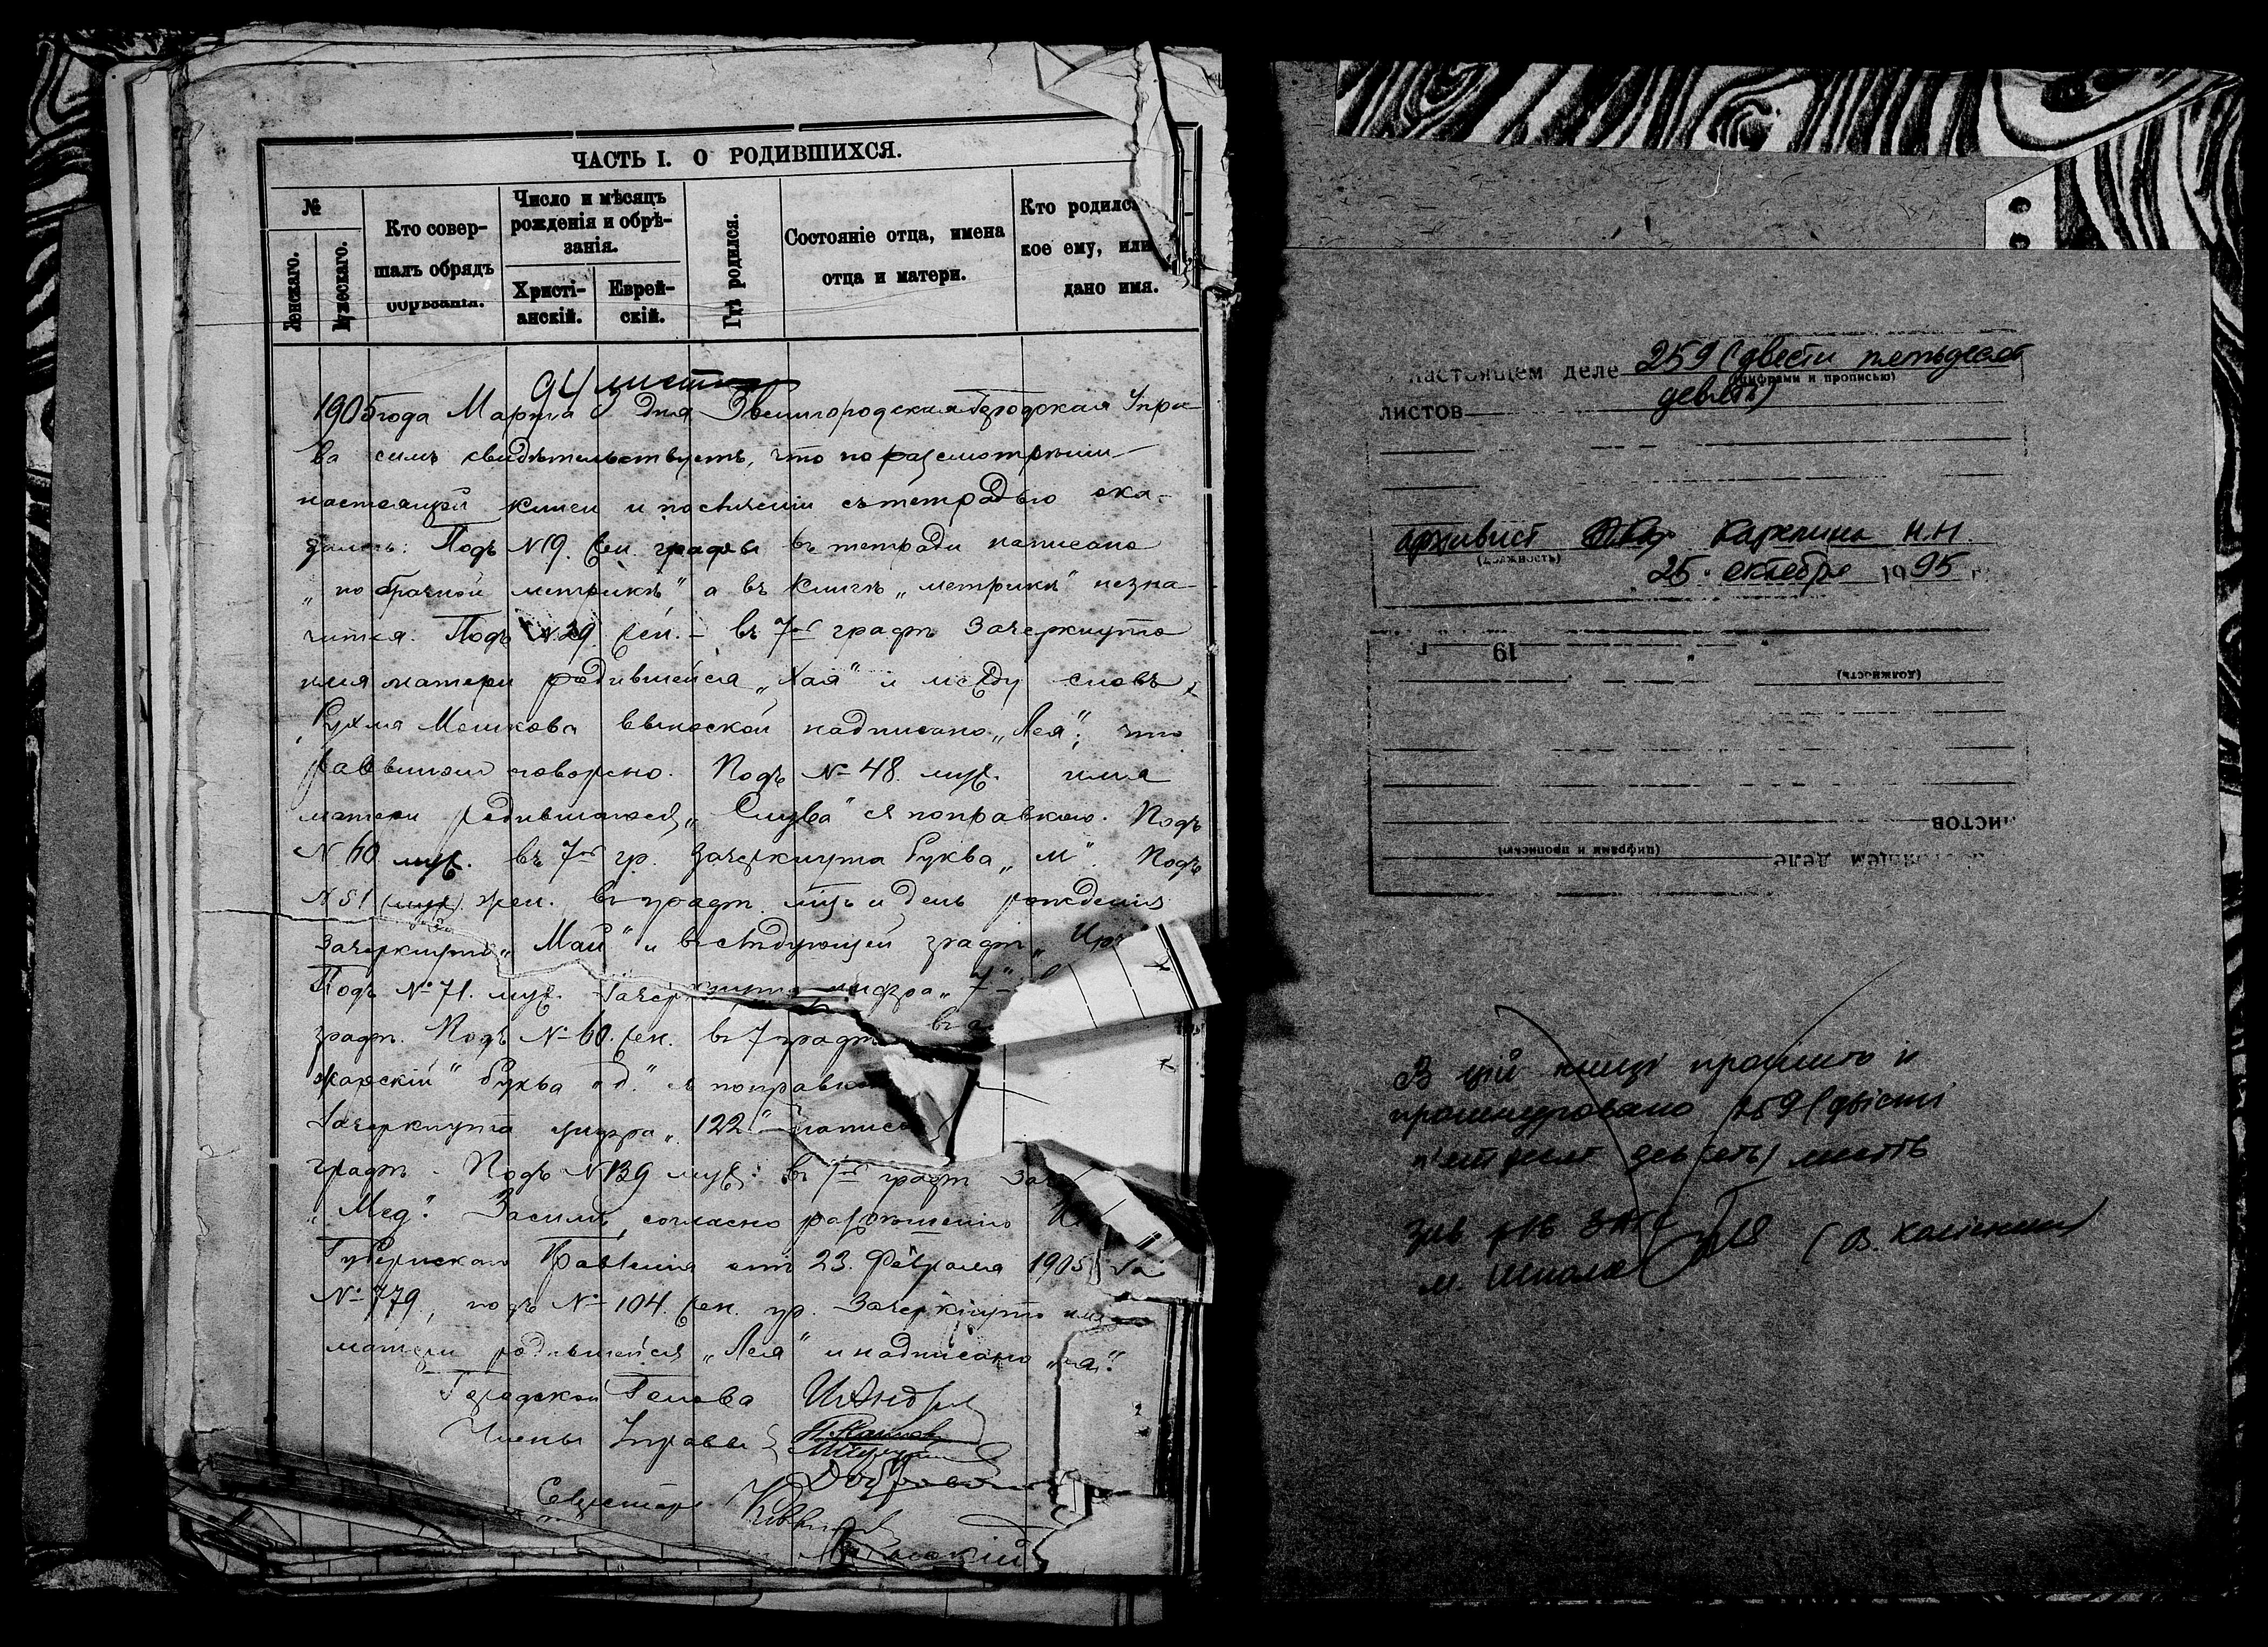 ЧАСТЬ I. О РОДИВШИХСЯ.
№
Женскаго.
Мужескаго.
Кто совер-
шалъ обрядъ
обрѣзанія.
Число и мѣсяцъ
рожденія и обрѣ-
занія.
Христі-
анскій.
Еврей-
скій.
Гдѣ родился.
Состояніе отца, имена
отца и матери.
Кто родилс
кое ему, или
дано имя.
94 листа
1905 года Марта 3 дня Звенигородская Городская Упра-
ва симъ свидѣтельствуетъ, что по разсмотрѣніи
настоящей книги и по сличеніи съ тетрадью ока-
залось: Подъ № 19. жен. графы въ тетради написано
„по брачной метрикѣ" а въ книгѣ „метрикѣ" незна-
чится. Подъ № 29 жен. – въ 7ой графѣ зачеркнуто
имя матери родившейся „Хая" и между словъ
Рухля Мошкова выноской надписано „Лея", что
раввиномъ оговорено. Подъ № 48. муж. имя
матери родившагося „ " съ поправкою. Подъ
№ 60 муж. въ 7ой гр. зачеркнута буква „м". Подъ
№ 51 (муж). жен. въ графѣ мцъ и день рожденія
зачеркнуто „Май" и въ слѣдующей графѣ
Подъ № 71. муж. зачеркнута цифра „7"
графѣ. Подъ № 60. жен. въ 7 графѣ
жарскій" буква „д." съ поправкою
Зачеркнута цифра „122"
графѣ. Подъ № 139 муж. въ 7ой графѣ
„Мед". Засимъ, согласно разрѣшенію
Губернскаго Правленія отъ 23. Февраля 1905 г. за
№ 779, подъ № 104. жен. гр. зачеркнуто имя
матери родившейся „Лея" и надписано
Городской Голова
Члены Управы
Секретарь
настоящем деле 259 (двести пятьдесят
(цифрами и прописью)
девять)
листов
архивист Н.Н.
(должность)
25 октября 1995 г.
19 г.
(должность)
листов
(цифрами и прописью)
настоящем деле
В цій книзі прошито и
пронумеровано 259 (двісті
п'ятдесят девять) листів
Зав ЗАГС
м. Шпола